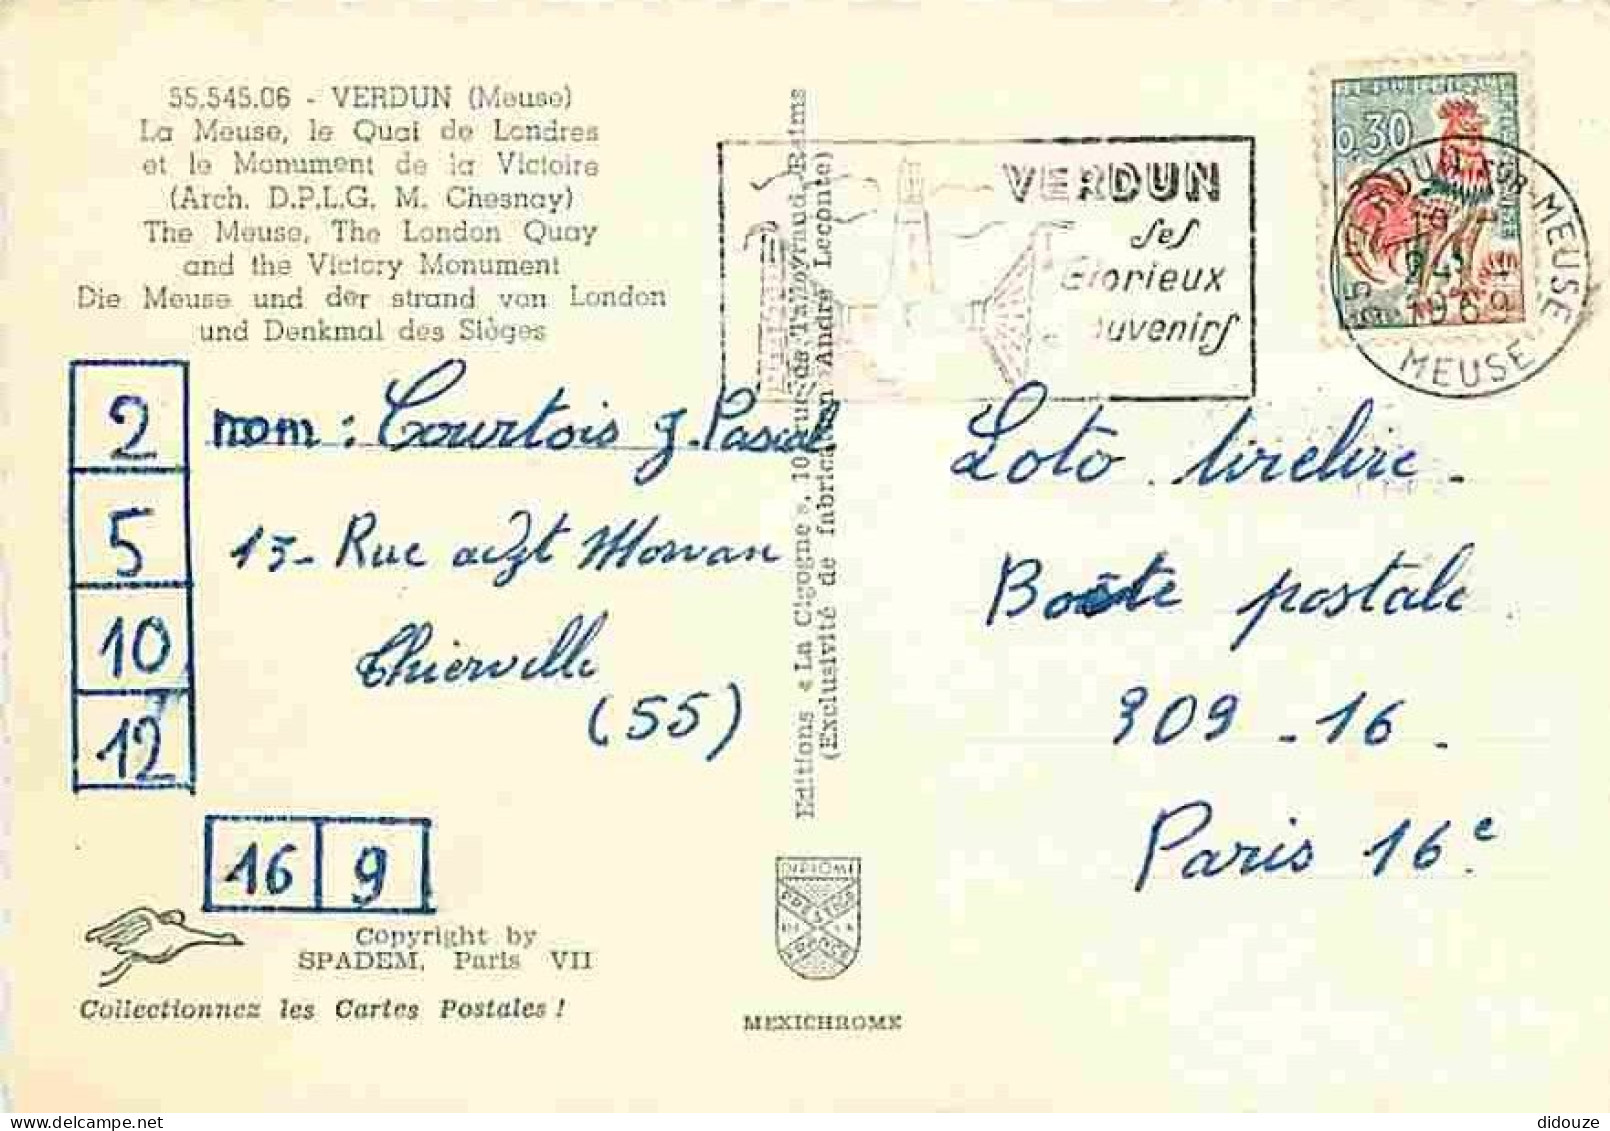 55.545.06 - VERDUN (Meuse)
La Meuse, le Quai de Londres
et le Monument de la Victoire
(Arch. D.P.L.G. M. Chesnay)
The Meuse, The London Quay
and the Victory Monument
Die Meuse und der strand von London
und Denkmal des Sièges
2
5
10
12
nom : Courtois J. Pascal
15- Rue adjt Morvan
Thierville
(55)
16 9
Copyright by
SPADEM, Paris VII
Collectionnez les Cartes Postales !
Editions « La Cigogne », 10 rue de Talleyrand, Reims
(Exclusivité de fabrication André Leconte)
MEXICHROME
VERDUN
Ses
Glorieux
Souvenirs
0,30
VERDUN-SUR-MEUSE
1969
MEUSE
Loto tirelire -
Boîte postale
309 - 16 -
Paris 16e
didouze